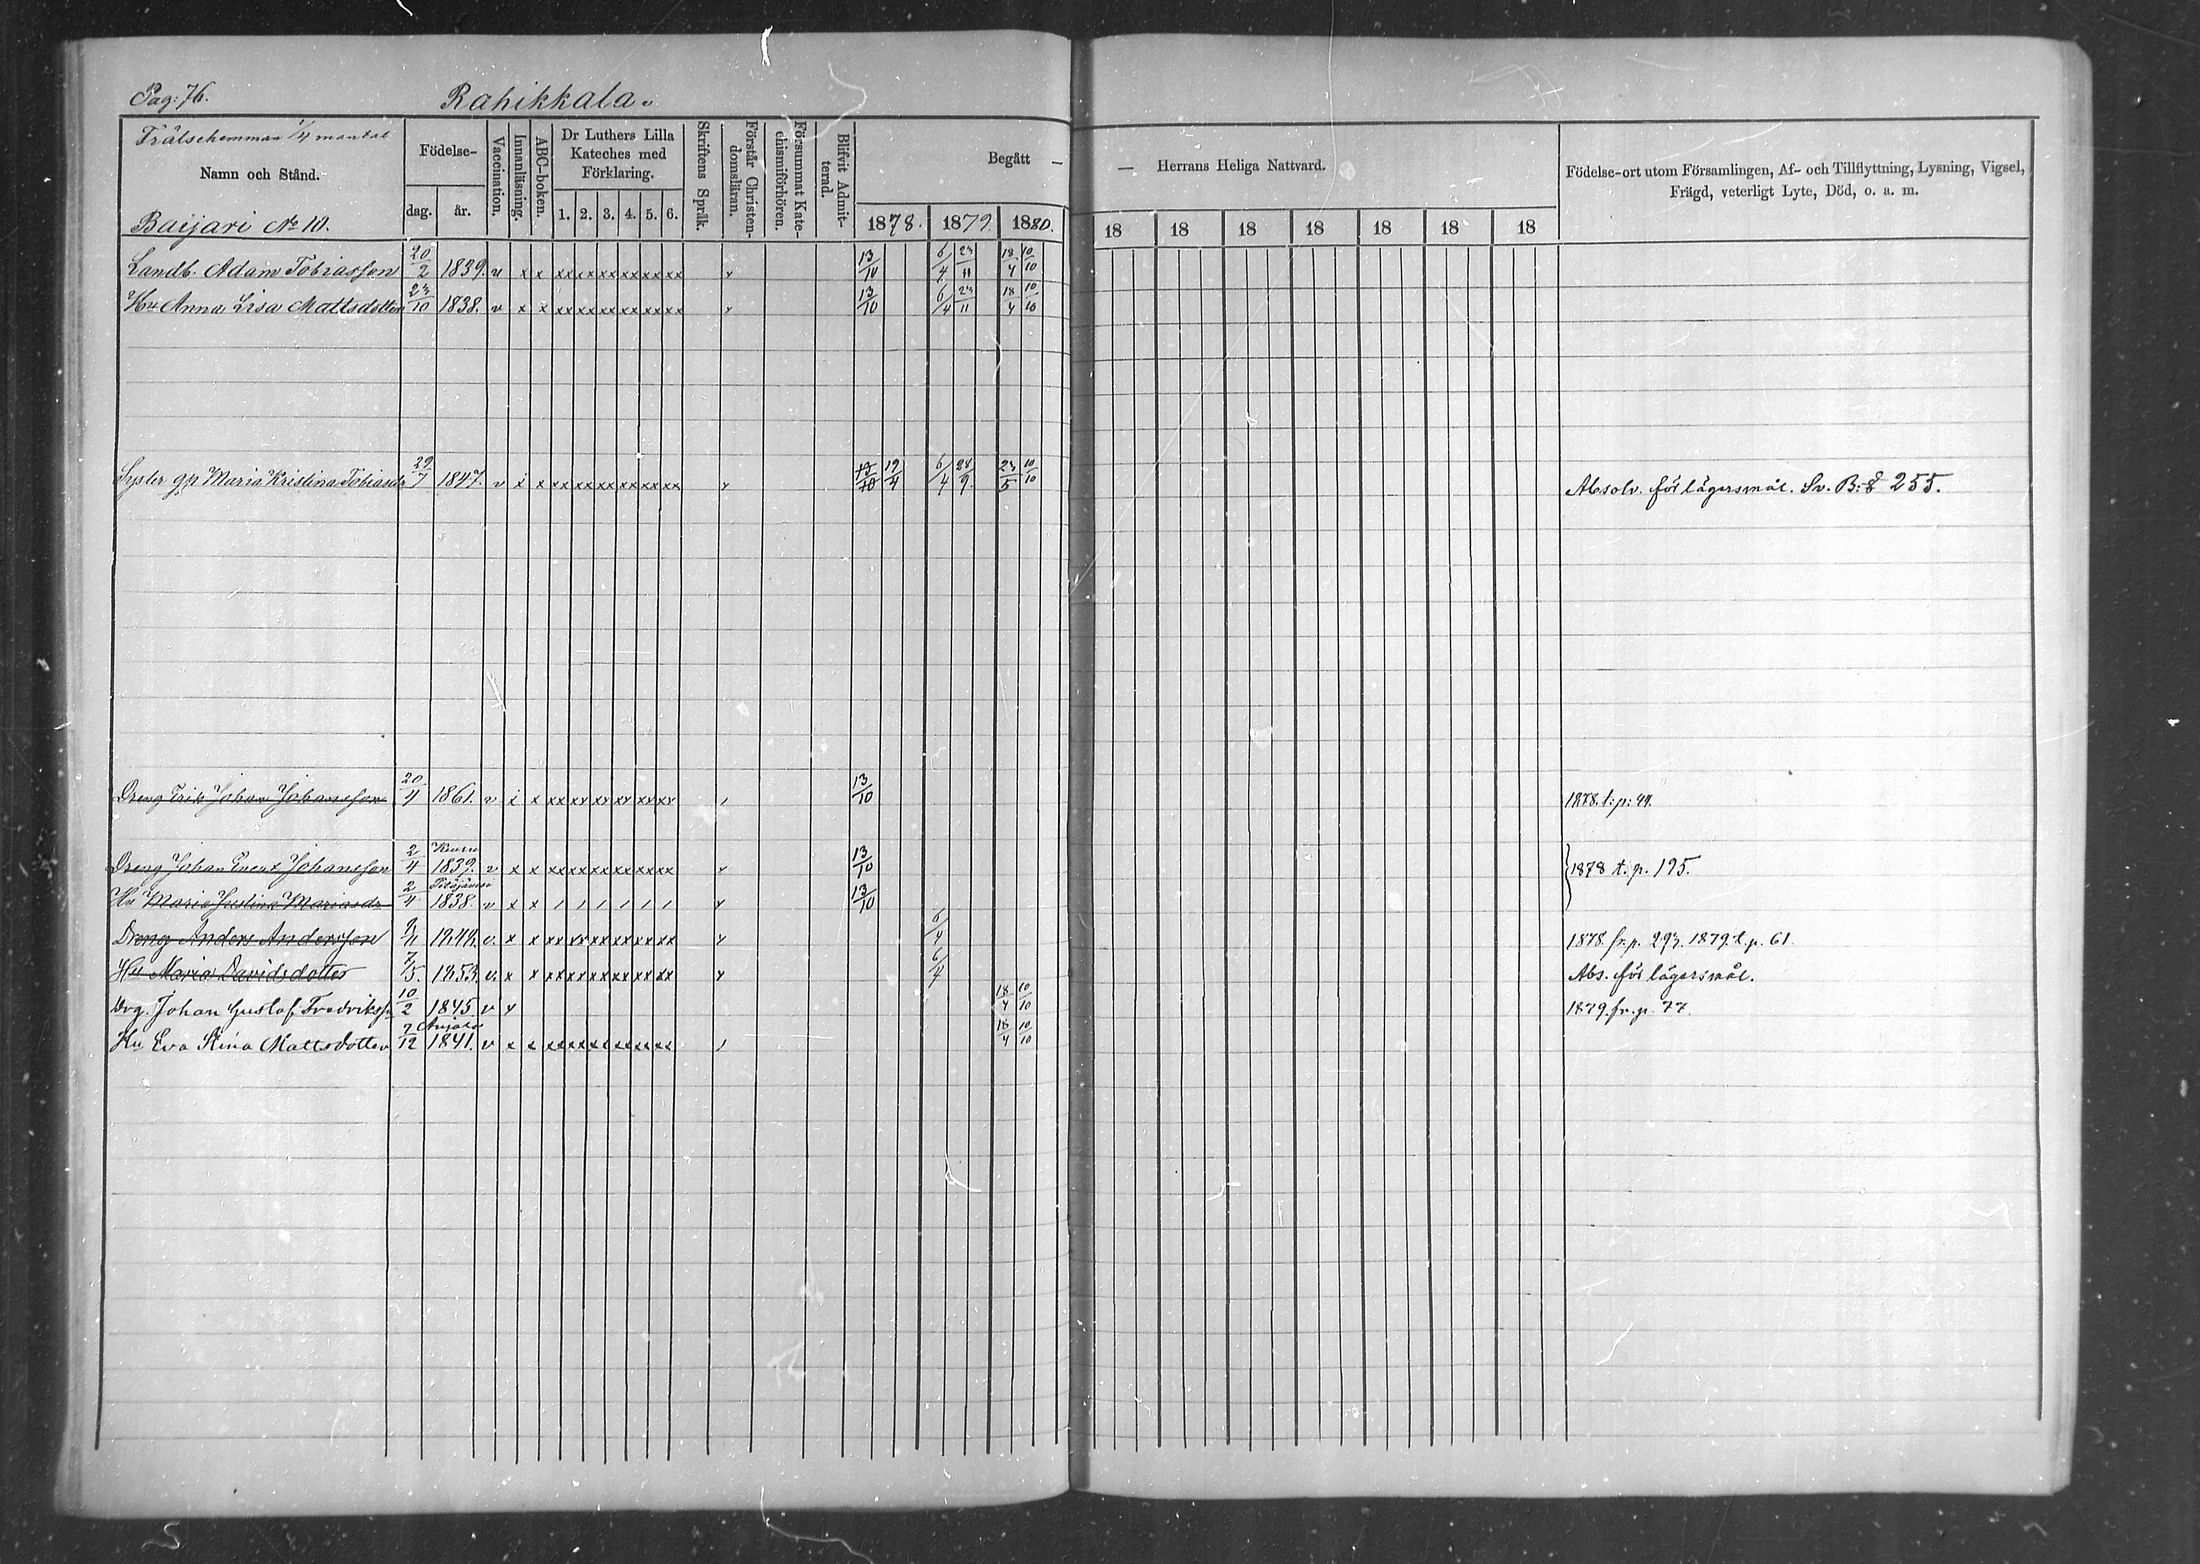 Pag: 76.
Rahikkala.
Frälsehemman 1/4 mantal
Namn och Stånd.
Baijari No 10.
Födelse-
dag.
år.
Vaccination.
Innanläsning.
ABC-boken.
Dr Luthers Lilla
Kateches med
Förklaring.
1. 2. 3. 4. 5. 6.
Skriftens Språk.
Förstår Christen-
domsläran.
Försummat Kate-
chismiförhören.
Blifvit Admit-
terad.
Begått —
1878. 1879. 1880.
— Herrans Heliga Nattvard.
18 18 18 18 18 18 18
Födelse-ort utom Församlingen, Af- och Tillflyttning, Lysning, Vigsel,
Frägd, veterligt Lyte, Död, o. a. m.
Landb. Adam Tobiasson 20/2 1839. v x x xx xx xx xx xx xx 13/10 6/4 23/11 18/4 10/10
Hu Anna Lisa Mattsdotter 23/10 1838. v x x xx xx xx xx xx xx 13/10 6/4 23/11 18/4 10/10
Syster qp Maria Kristina Tobiasdr 29/7 1847. v x x xx xx xx xx xx xx 13/10 19/4 6/4 28/9 23/5 10/10 Absolv. för lägersmål. Sv. B: 255.
Dreng Erik Johan Johansson 20/4 1861. v x x xx xx xx xx xx xx 13/10 1878. t: p: 44.
Dreng Johan Johansson 2/4 1839. v x x xx xx xx xx xx xx 13/10 1878 t. p. 195.
Hu Maria Justina Mariasdr 2/4 1838. v x x / / / / / / 13/10
Dreng Anders Andersson 9/11 1844. v. x x xx xx xx xx xx xx 6/4 1878. fr. p. 293. 1879. t. p. 61.
Hu Maria Davidsdotter 7/5. 1853. v. x x xx xx xx xx xx xx 6/4 Abs. för lägersmål.
Drg. Johan Gustaf Fredriksson 10/2 1845. v 18/4 10/10 1879. fr. p. 77.
Anjala
Hu Eva Stina Mattsdotter 7/12 1841. v x x xx xx xx xx xx xx 18/4 10/10